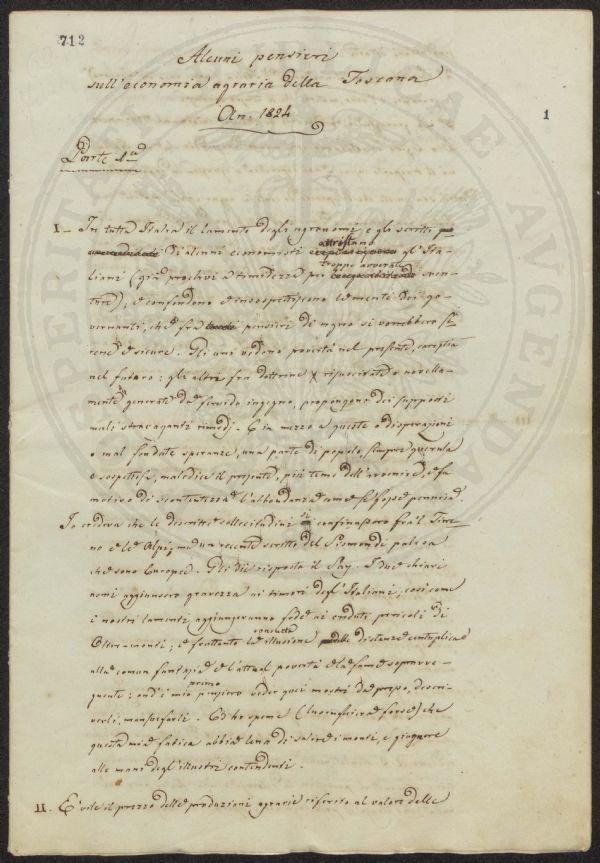 712
Alcuni pensieri
sull'economia agraria della Toscana
An. 1824
1
Parte 1.a
I_ In tutta Italia il lamento degli agronomi, e gli scritti
di alcuni economisti attristano gl'Ita-
liani (già proclivi a timidezza per troppo avverate sven-
ture), e confondono e insospettiscono le menti dei go-
vernanti, che fra pensieri di regno si vorrebbero se-
rene e sicure. Gli uni vedono povertà nel presente,
nel futuro: gli altri fra dottrine risuscitate o novella-
mente generate da fervido ingegno, propongono dei supposti
mali stravaganti rimedj. E in mezzo a queste o disperazioni
o mal fondate speranze, una parte di popolo, sempre querula
e sospettosa, maledice il presente, più teme dell'avvenire, e fa
motivo di scontentezza l'abbondanza come se fosse penuria.
Io credeva che le descritte sollecitudini si confinassero fra'l Tirre-
no e le Alpi; ma un recente scritto del Sismondi palesa
che sono Europee. Gli diè risposta il Say. I due chiari
nomi aggiunsero gravezza ai timori degl'Italiani, così come
i nostri lamenti aggiungeranno fede ai creduti pericoli di
Oltre-monti; e frattanto le illusioni distanze centuplica
alla comun fantasia e l'attual povertà e la fame sopravve-
gnente: ond'è mio primo pensiero veder quei mostri da presso, descri-
verli, mansuefarli. Ed ho speme (lusinghiera forse) che
questa mia fatica abbia lena di salire i monti, e giugnere
alle mani degl'illustri contendenti.
II. È vile il prezzo delle produzioni agrarie riferito al valore delle